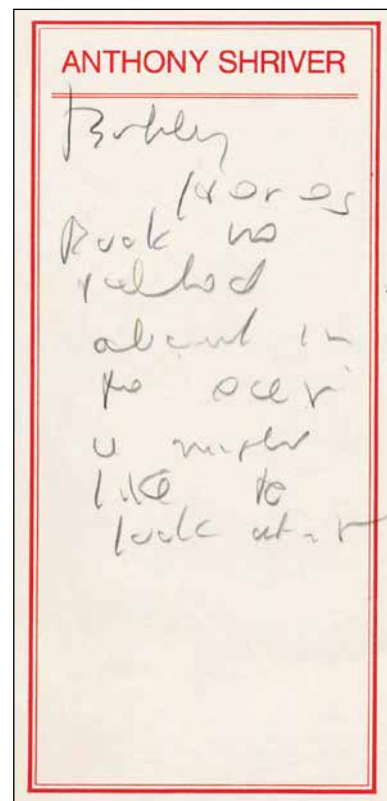 ANTHONY SHRIVER
Bobby
Here is
Book we
talked
about in
the ocean
u might
like to
look at